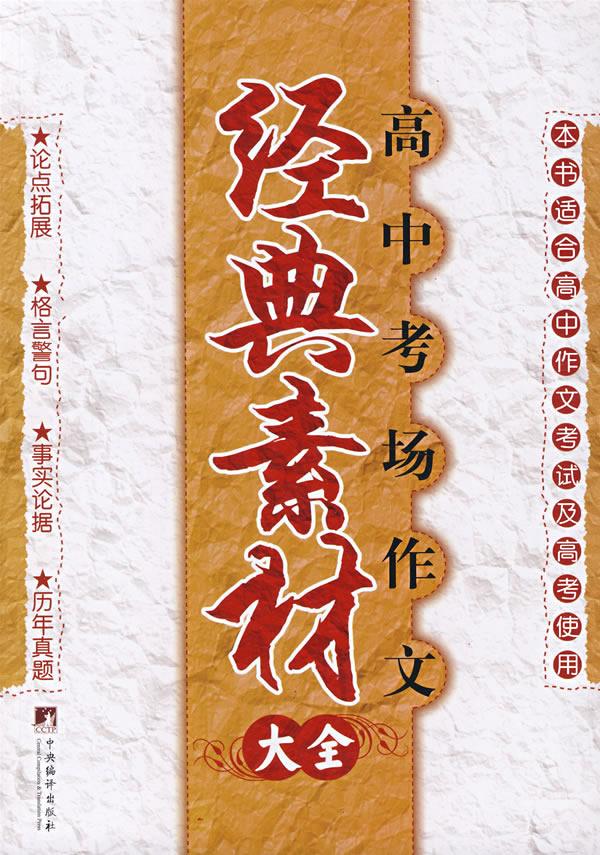 本书适合高中作文考试及高考使用
高中考场作文
经典素材
大全
★论点拓展 ★格言警句 ★事实论据 ★历年真题
CCTP
中央编译出版社
Central Compilation & Translation Press